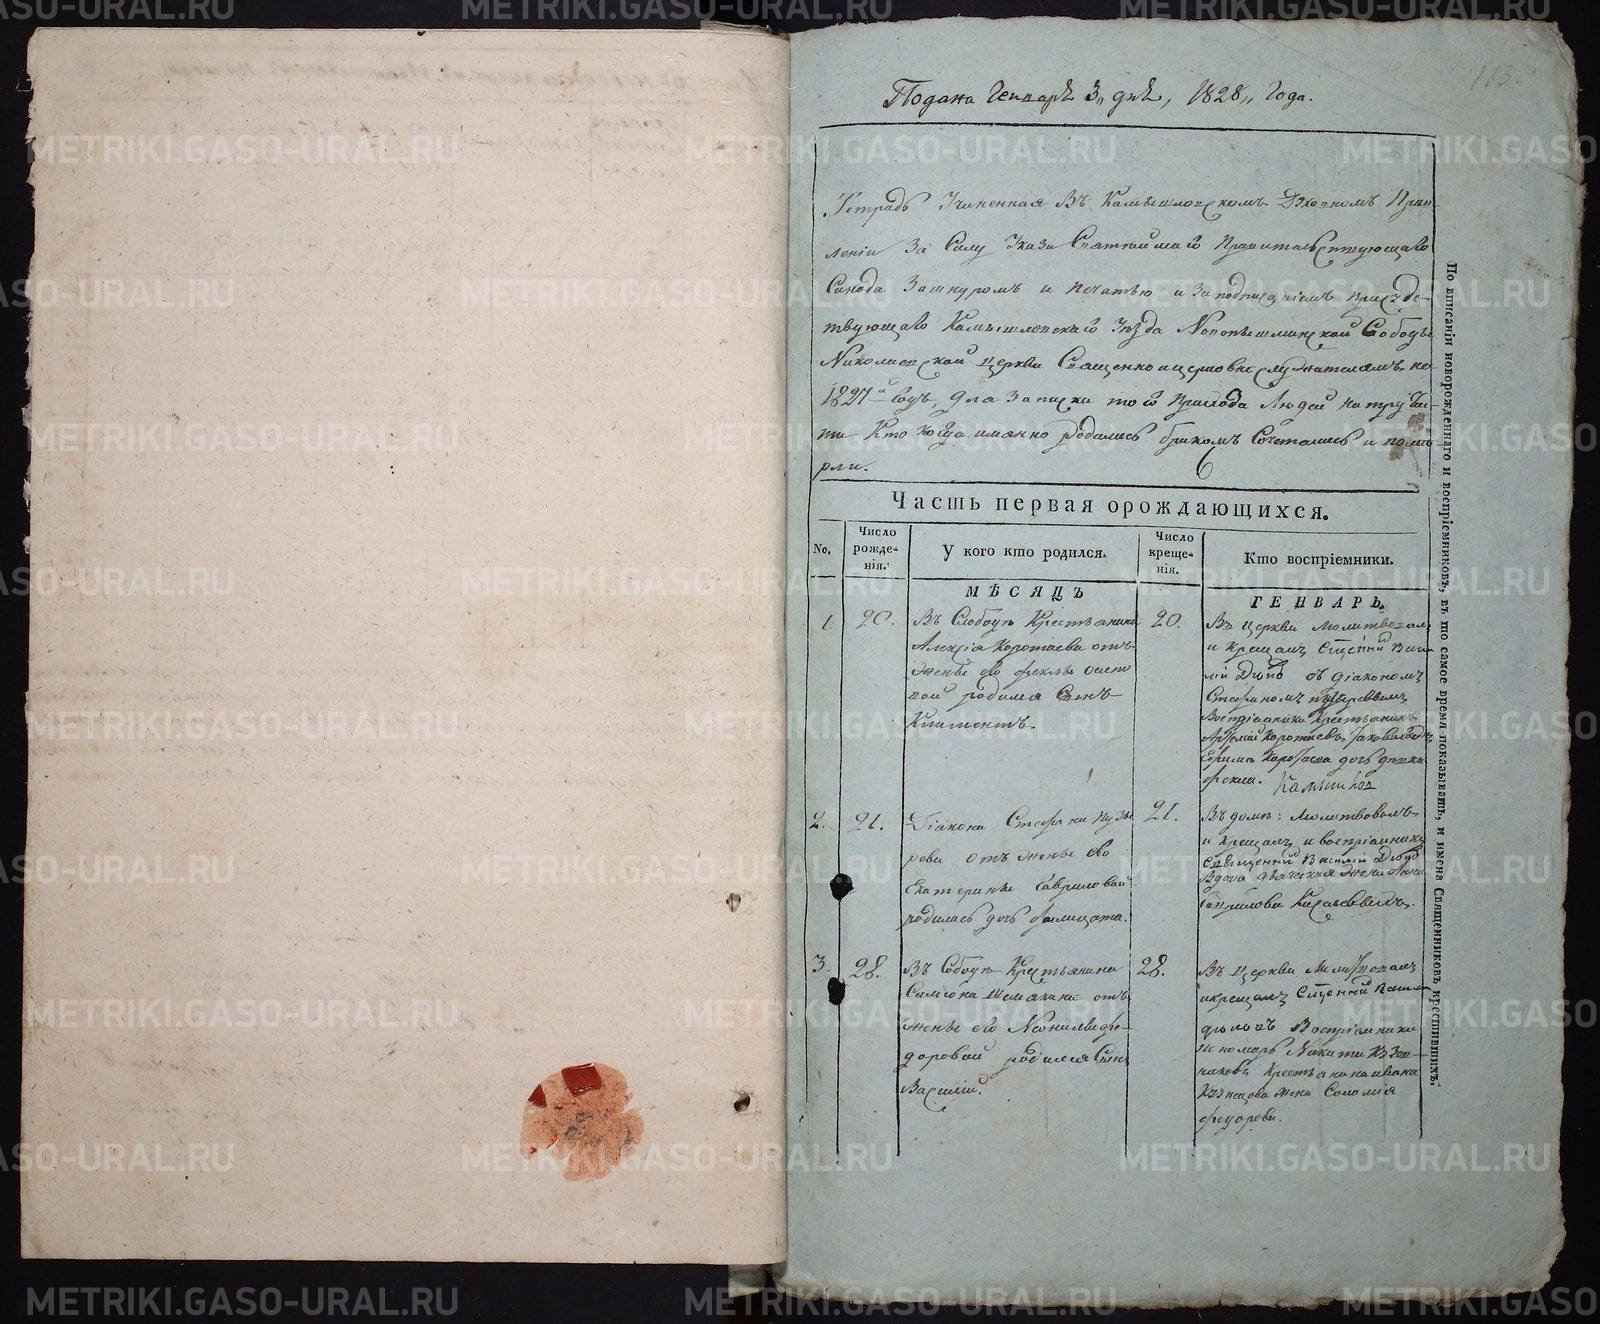 113.
Подана Генваря 3„ дня, 1828„ года.
Тетрадь Учиненная Въ Камышловскомъ Духовномъ Прав-
леніи За Силу Указа Святейшаго Правительствующаго
Синода За шнуромъ и печатью и За подписаніемъ присудс-
твующаго Камышловскаго Уезда Новопышминской Слободы
Николаевской церкви Священноицерковнослужителямъ на
1827й годъ, Для Записки того Прихода Людей на три Ча-
сти Кто Когда именно родились бракомъ Сочетались и поме-
рли.
Часть первая орождающихся.
No.
Число рожде- нія.
У кого кто родился.
Число креще- нія.
Кто воспріемники.
МѢСЯЦЪ
ГЕНВАРЬ.
1.
20.
Въ Слободе Крестьянина
Алексея Коротаева отъ
жены его Феклы
родился Сынъ
Климентъ.
20.
Въ церкви Молитвовалъ
и Крещалъ Сщенній Васи-
лій съ діакономъ
Стефаномъ
Воспріемники Крестьянинъ
Коротаевъ
Коротаева дочь девка
Фекла.
2.
21.
Діакона Стефана
отъ жены его
Екатерины Гавриловой
родилась дочь Фелицата.
21.
Въ доме: Молитвовалъ
и Крещалъ и воспріемники
Сщенній Василій
Вдова дьяческая жена Анна
Гаврилова
3.
28.
Въ Слободе Крестьянина
Симіона Шемякина отъ
жены его Неонилы Фе-
доровой родился Сынъ
Василій.
28.
Въ церкви Молитвовалъ
икрещалъ Сщенній Васил
Воспріемники
пономарь Никита Каза-
чковъ Крестьянина ивана
Кузнецова жена Соломія
Федорова.
По вписаніи новорожденнаго и воспріемниковъ, въ то самое время показывать, и имена Священниковъ крестившихъ.
METRIKI.GASO-URAL.RU